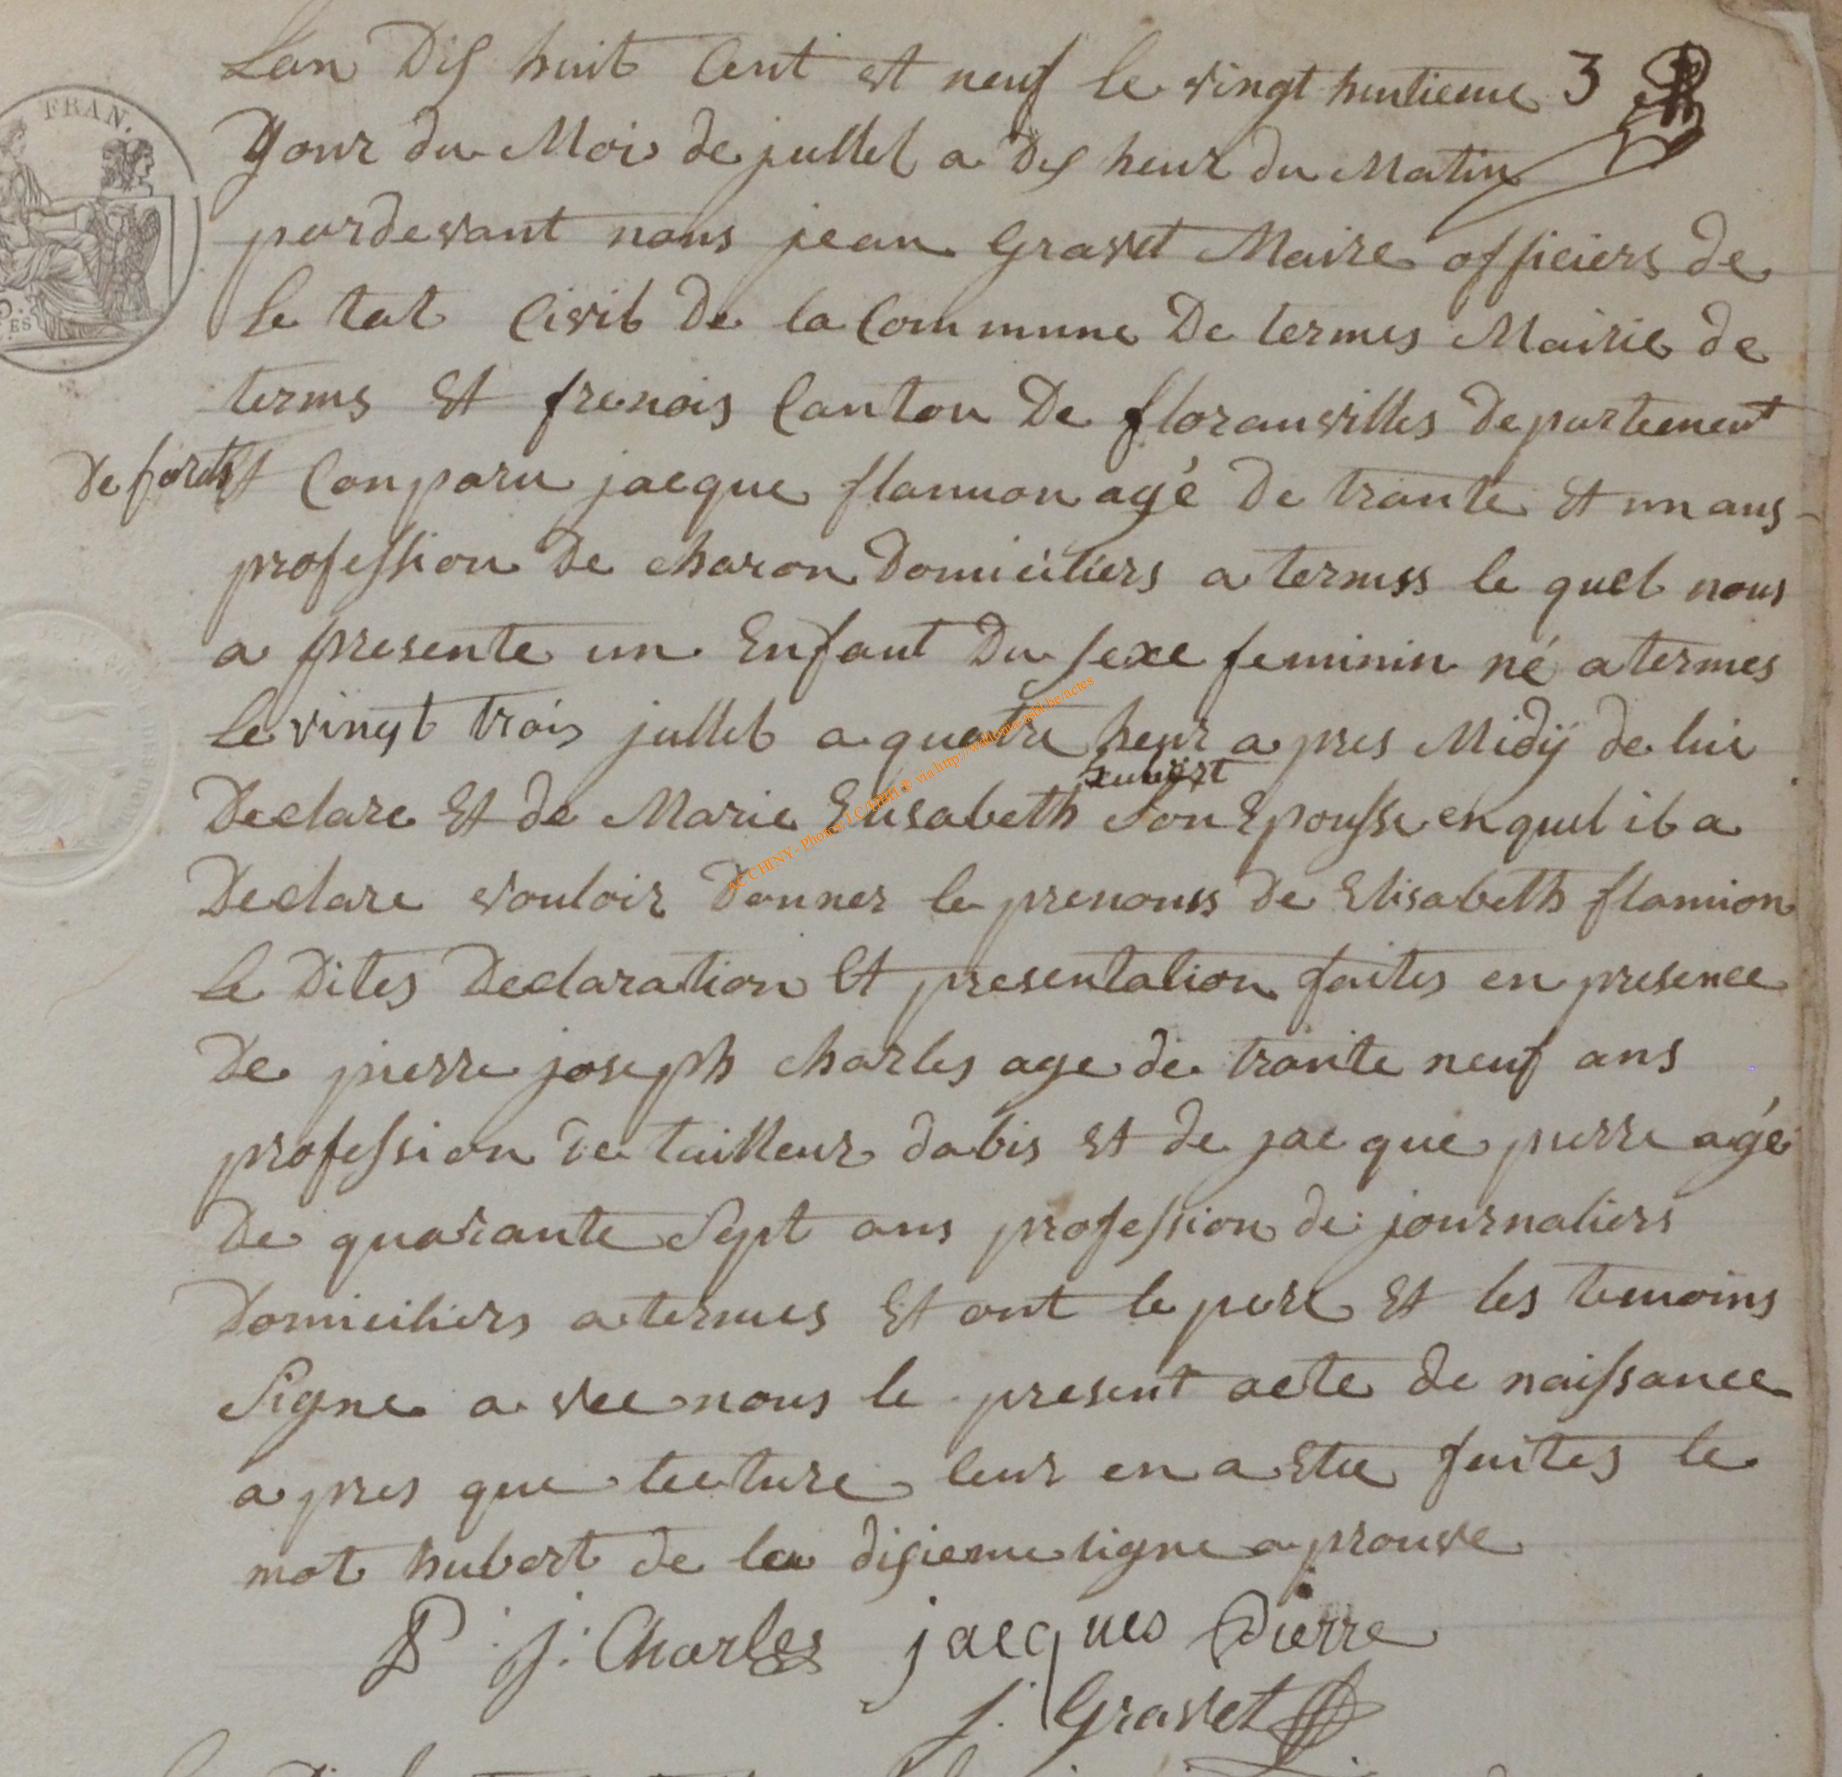 Lan Dis huit Cent et neuf le vingt huitieme 3
Jour du Moi de jullet a Dis heur du Matin
pardevant nous jean Gravet Maire officiers de
le tat Civil De la Commune De termes Mairie de
terms Et frenois Canton De floranvilles Departement
De forets Et Conparu jacque flamion agé De trante Et un ans
profession De charon Domiciliers a termes le quel nous
a presente un Enfant Du sexe feminin né a termes
le vingt trois jullet a quatre heur a pres Midÿ de lui
hubert
Declare Et de Marie Elisabeth Son Epousse en quel il a
Declare vouloir Donner le prenoms De Elisabeth flamion
le Dites Declaration Et presentation faites en presence
De pierre joseph charles age de trante neuf ans
profession de tailleur dabis et de jacque pierre agé
De quarante Sept ans profession de journaliers
Domiciliers a termes Et ont le pere Et les temoins
Signe a vec nous le present acte de naissance
a pres que lecture leur en a Ete faites le
mot hubert de la disieme ligne a prouve
P. j. Charles jacques Pierre
j. Gravet
FRAN.
AC CHINY - Photos